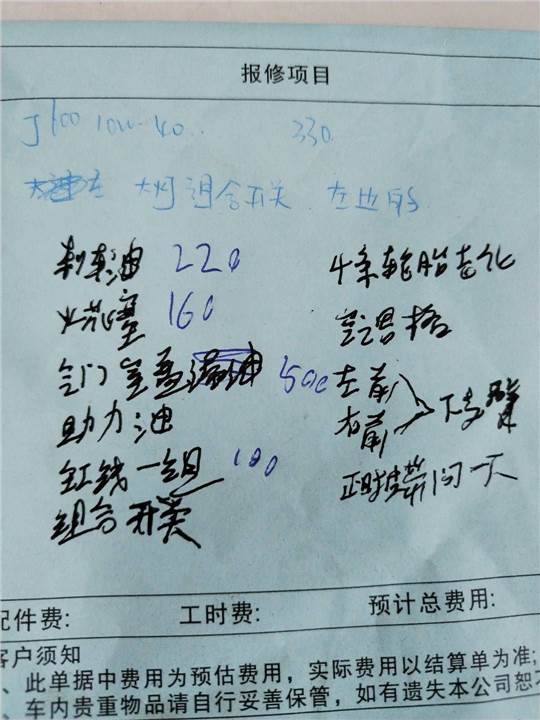 报修项目
J600 10w-40. 330
大灯组合开关 左边的
刹车油 220
火花塞 160
气门室盖漏油 500
助力油
缸线一组 100
组合开关
4条轮胎老化
空调格
左前
右前
下支臂
正时皮带问一下
配件费: 工时费: 预计总费用:
客户须知
、此单据中费用为预估费用，实际费用以结算单为准;
车内贵重物品请自行妥善保管，如有遗失本公司恕